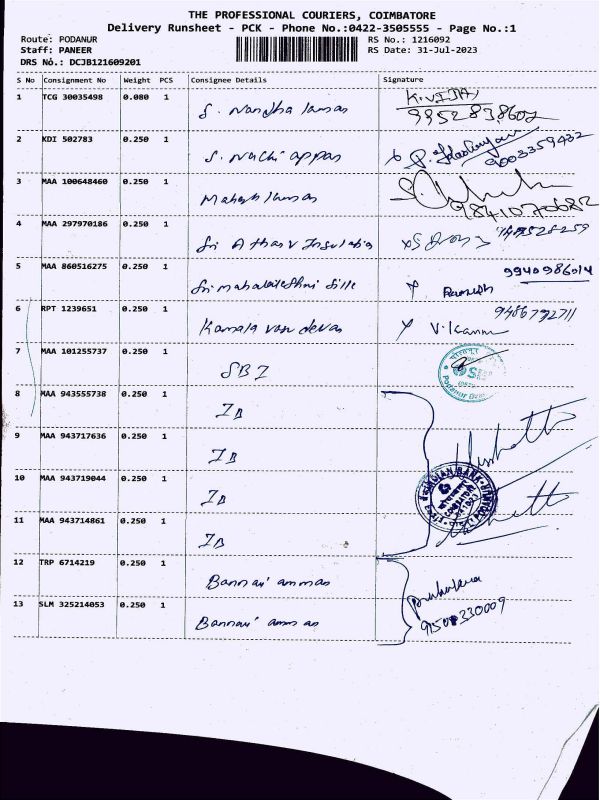 THE PROFESSIONAL COURIERS, COIMBATORE
Delivery Runsheet - PCK - Phone No.:0422-3505555 - Page No.:1
Route: PODANUR RS No.: 1216092
Staff: PANEER RS Date: 31-Jul-2023
DRS No.: DCJB121609201
S No Consignment No Weight PCS Consignee Details Signature
1 TCG 30035498 0.080 1 S. Nandha kumar K.VIJAY
9952838602
2 KDI 502783 0.250 1 S. Nachi appan 9003359432
3 MAA 100648460 0.250 1 Mahesh kumar
9841070682
4 MAA 297970186 0.250 1 Sri Atharv
5 MAA 860516275 0.250 1 Sri mahalakshmi Ramesh 9940986014
6 RPT 1239651 0.250 1 Kamala vasudevan V. Kannan 9486792711
7 MAA 101255737 0.250 1 SBI
8 MAA 943555738 0.250 1 IB
9 MAA 943717636 0.250 1 IB
10 MAA 943719044 0.250 1 IB
INDIAN BANK
11 MAA 943714861 0.250 1 IB
12 TRP 6714219 0.250 1 Bannari amman
13 SLM 325214053 0.250 1 Bannari amman